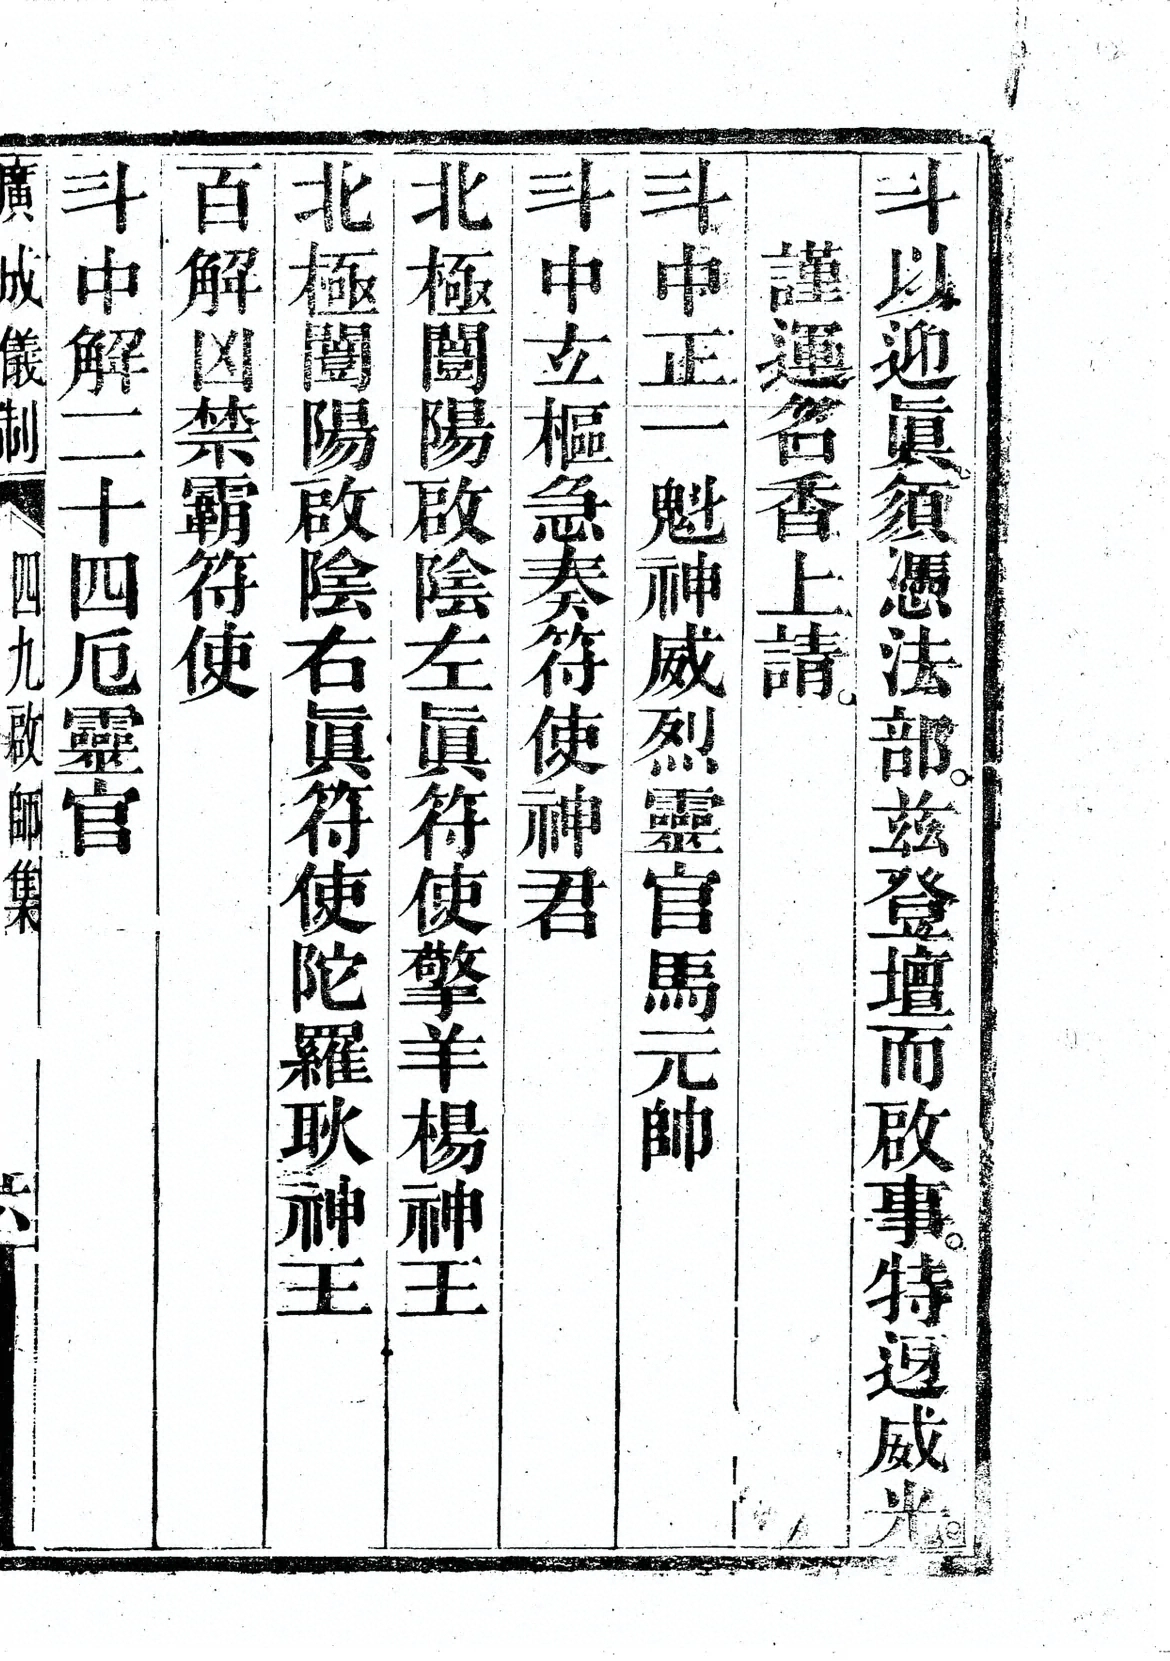 斗以迎眞須憑法部。茲登壇而啟事。特迓威光。
謹運名香上請。
斗中正一魁神威烈靈官馬元帥
斗中立樞急奏符使神君
北極闓陽啟陰左眞符使擎羊楊神王
北極闓陽啟陰右眞符使陀羅耿神王
百解凶禁霸符使
斗中解二十四厄靈官
廣成儀制 四九啟師集 六